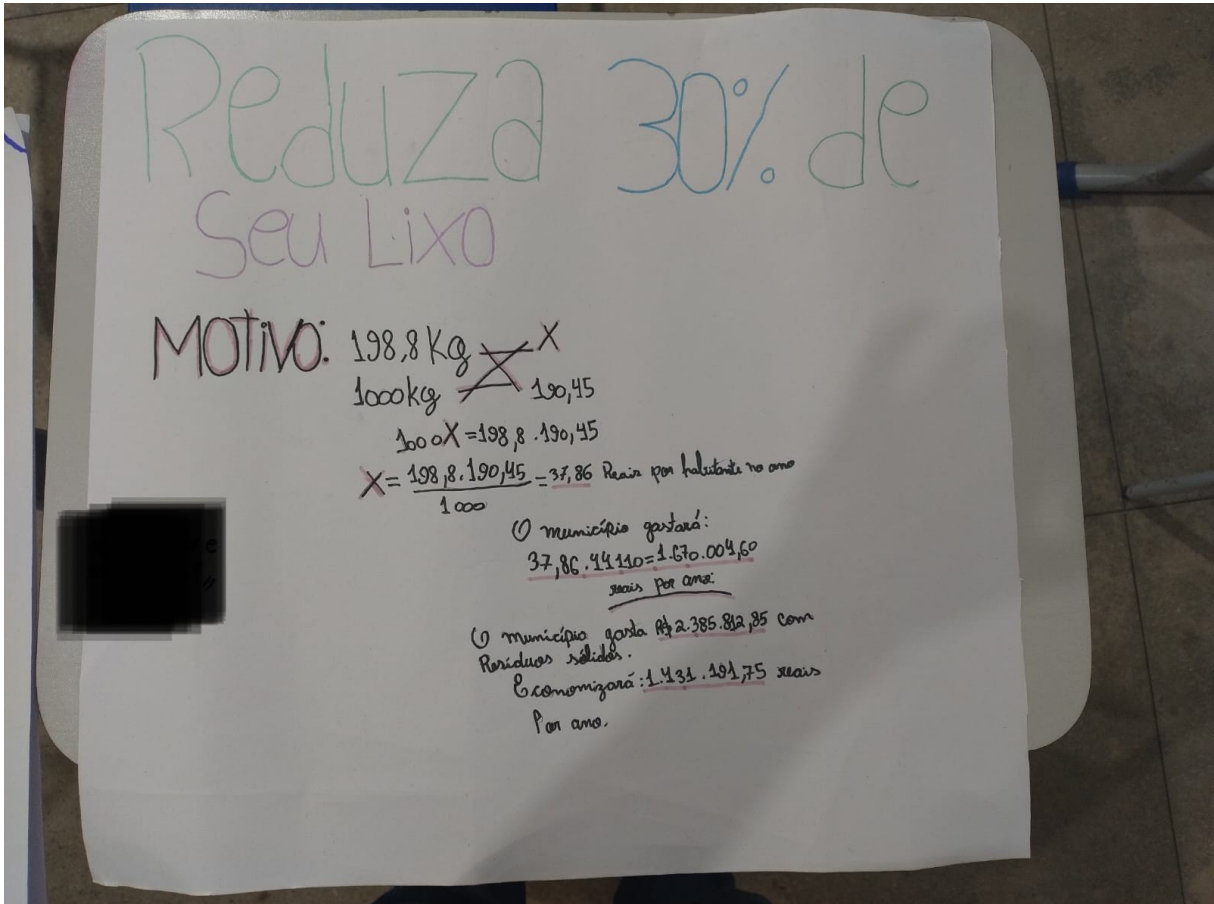 Reduza 30% de
Seu Lixo
MOTIVO: 198,8 Kg X
1000kg 190,45
1000X = 198,8 . 190,45
X = 198,8 . 190,45 = 37,86 Reais por habitante no ano
1000
O município gastará:
37,86 . 44110 = 1.670.004,60
reais por ano:
O município gasta R$ 2.385.812,85 com
Resíduos sólidos.
Economizará: 1.431.191,75 reais
Por ano.